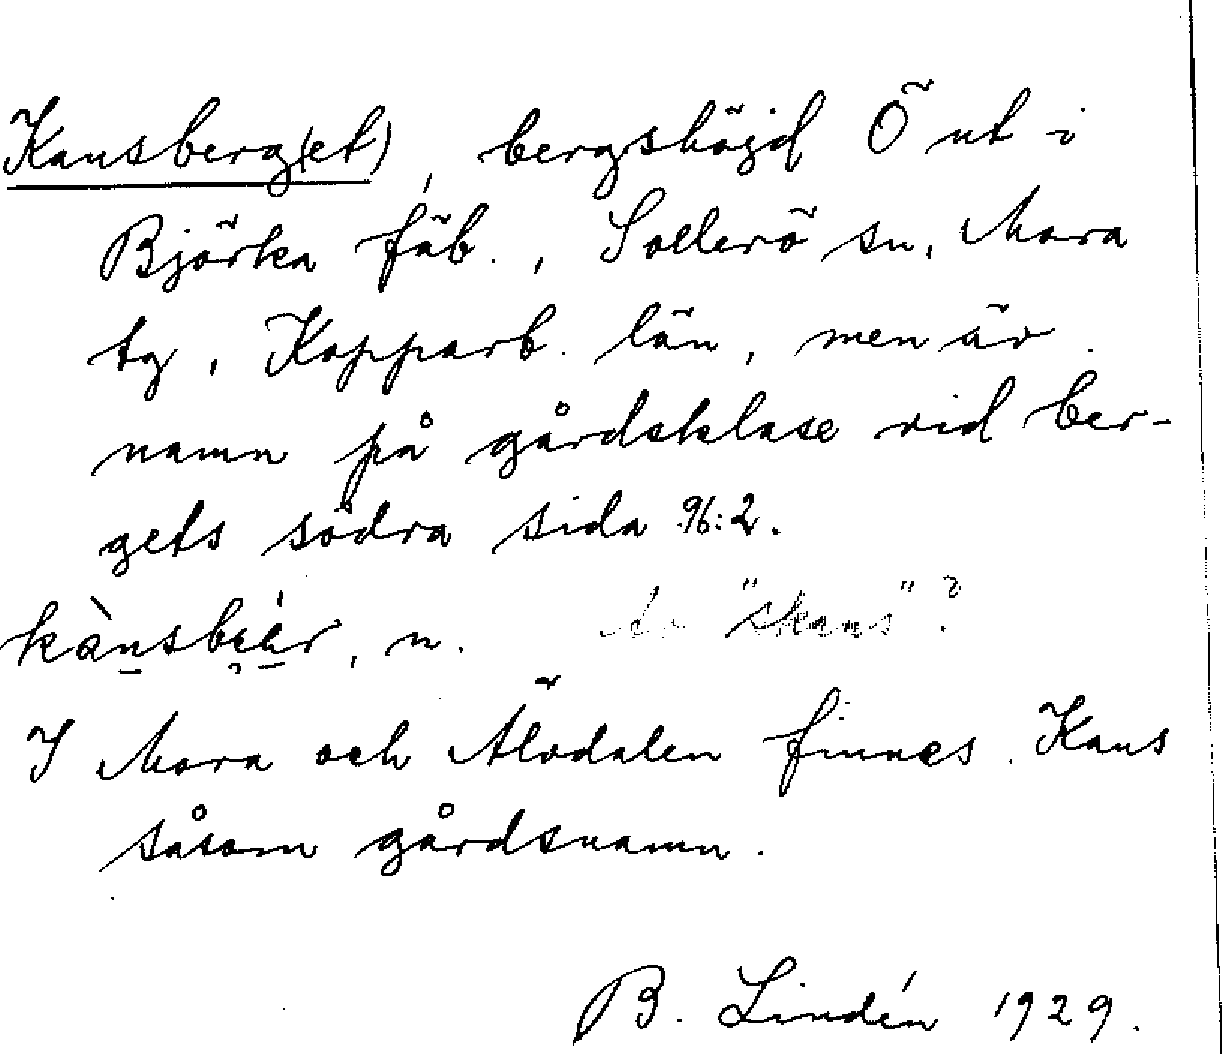 Kansberg(et), bergshöjd Ö ut i
Björka fäb., Sollerö sn, Mora
tg, Kopparb. län, men är
namn på gårdsklase vid ber-
gets södra sida 96:2.
kànsbɛ̀r, n. "skans"?
I Mora och Älvdalen finnes Kans
såsom gårdsnamn.
B. Lindén 1929.